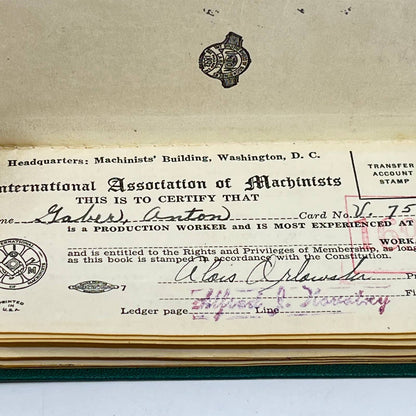 Headquarters: Machinists' Building, Washington, D. C.
TRANSFER
ACCOUNT
STAMP
International Association of Machinists
THIS IS TO CERTIFY THAT
me Gaber, Anton Card No. V. 75
is a PRODUCTION WORKER and is MOST EXPERIENCED AT
WORK,
and is entitled to the Rights and Privileges of Membership, as long
as this book is stamped in accordance with the Constitution.
Alois Orlowski P
7
Alfred J. Fi
Ledger page Line
PRINTED IN
U.S.A.